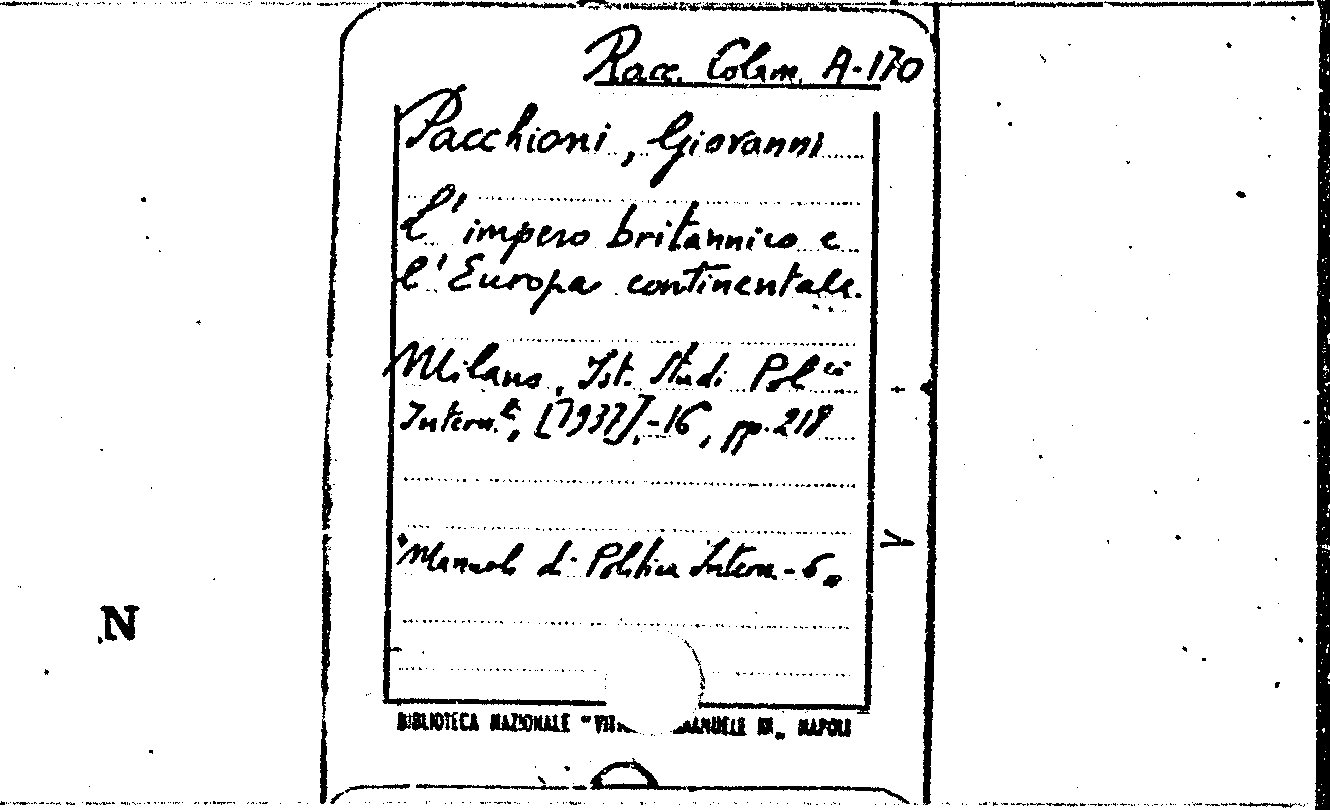 Racc. Colam. A-170
Pacchioni, Giovanni
L'impero britannico e
l'Europa continentale.
Milano, Ist. Studi Pol.ci
Intern.li, [1937], -16, pp. 218
"Manuali di Politica Intern. - 6„
N
BIBLIOTECA NAZIONALE "VITT MANUELE III„ NAPOLI